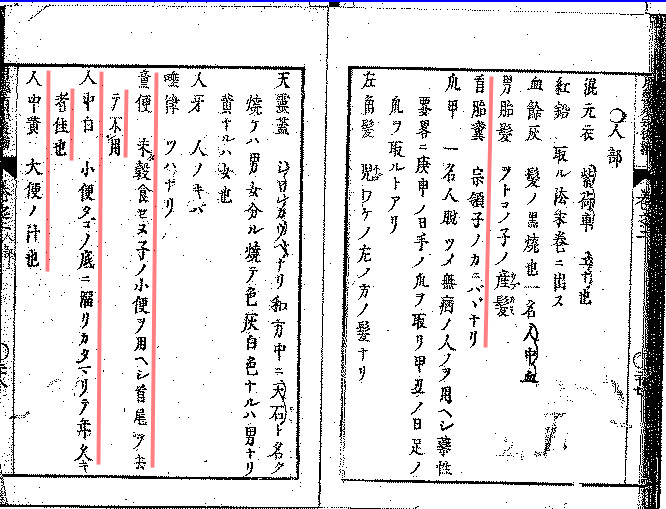 ○人部
混元衣 紫河車 也
紅鉛 取ル法 末巻ニ出ス
血餘灰 髪ノ黒焼也 一名人中血
男胎髪 ヲトコノ子ノ産髪
首胎糞 宗領子ノカニババナリ
爪甲 一名人脱 ツメ 無病ノ人ノヲ用ヘシ 藥性
要畧ニ庚申ノ日手ノ爪ヲ取リ甲丑ノ日足ノ
爪ヲ取ルトアリ
左角髪 児ワケノ左ノ方ノ髪ナリ
天靈蓋 ナリ 和方中ニ天石ト名ク
燒ケハ男女分ル 燒テ色灰白色ナルハ男ナリ
黄ナルハ女也
人牙 人ノキバ
唾律 ツハナリ
童便 未穀食セヌ子ノ小便ヲ用ヘシ 首尾ヲ去
テ不用
人中白 小便タゴノ底ニ溜リカタマリテ年久キ
者佳也
人中黄 大便ノ汁也
巻之二
巻之二 人部